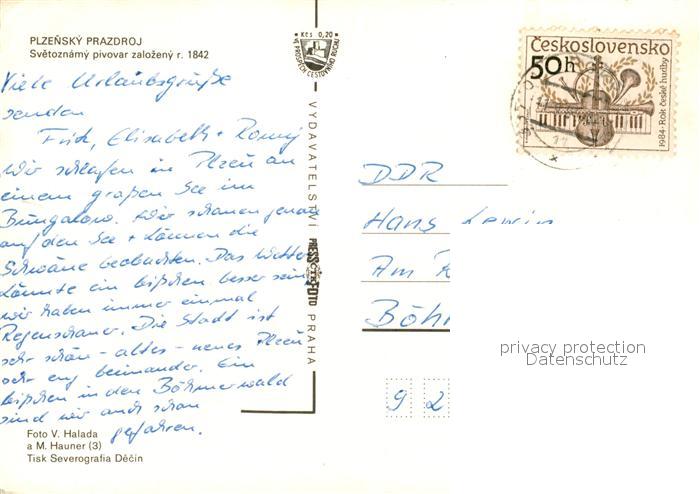 PLZEŇSKÝ PRAZDROJ
Světoznámý pivovar založený r. 1842
Viele Urlaubsgrüße
senden
Fritz, Elisabeth + Romy
Wir schlafen in Plzeň an
einem großen See im
Bungalow. Wir schauen genau
auf den See + können die
Schwäne beobachten. Das Wetter
könnte ein bißchen besser sein,
wir haben immer einmal
Regenschauer. Die Stadt ist
sehr schön - altes - neues Plzeň
sehr eng beieinander. Ein
bißchen in den Böhmerwald
sind wir auch schon
gefahren.
Foto V. Halada
a M. Hauner (3)
Tisk Severografia Děčín
Kčs 0,20
VE PROSPĚCH CESTOVNÍHO RUCHU
VYDAVATELSTVÍ
PRESSFOTO
PRAHA
Československo
50h
1984 · Rok české hudby
DDR
Hans Lewin
Am
Böh
92
privacy protection
Datenschutz